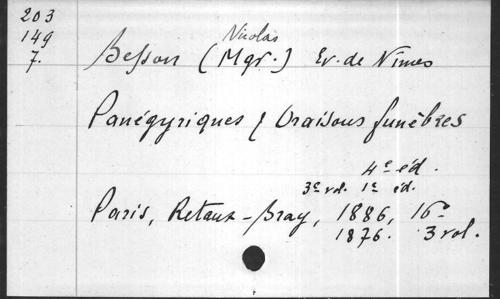 203
149
7.
Nicolas
Besson (Mgr.) Ev. de Nimes
Panégyriques & Oraisons funèbres
4e éd.
3e vol. 1e éd.
Paris, Retaux-Bray, 1886, 16°
1876. 3 vol.